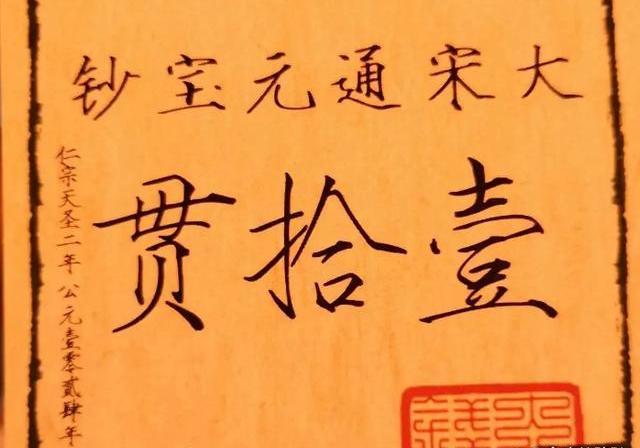 大宋通元宝钞
壹拾贯
仁宗天圣二年 公元壹零贰肆年